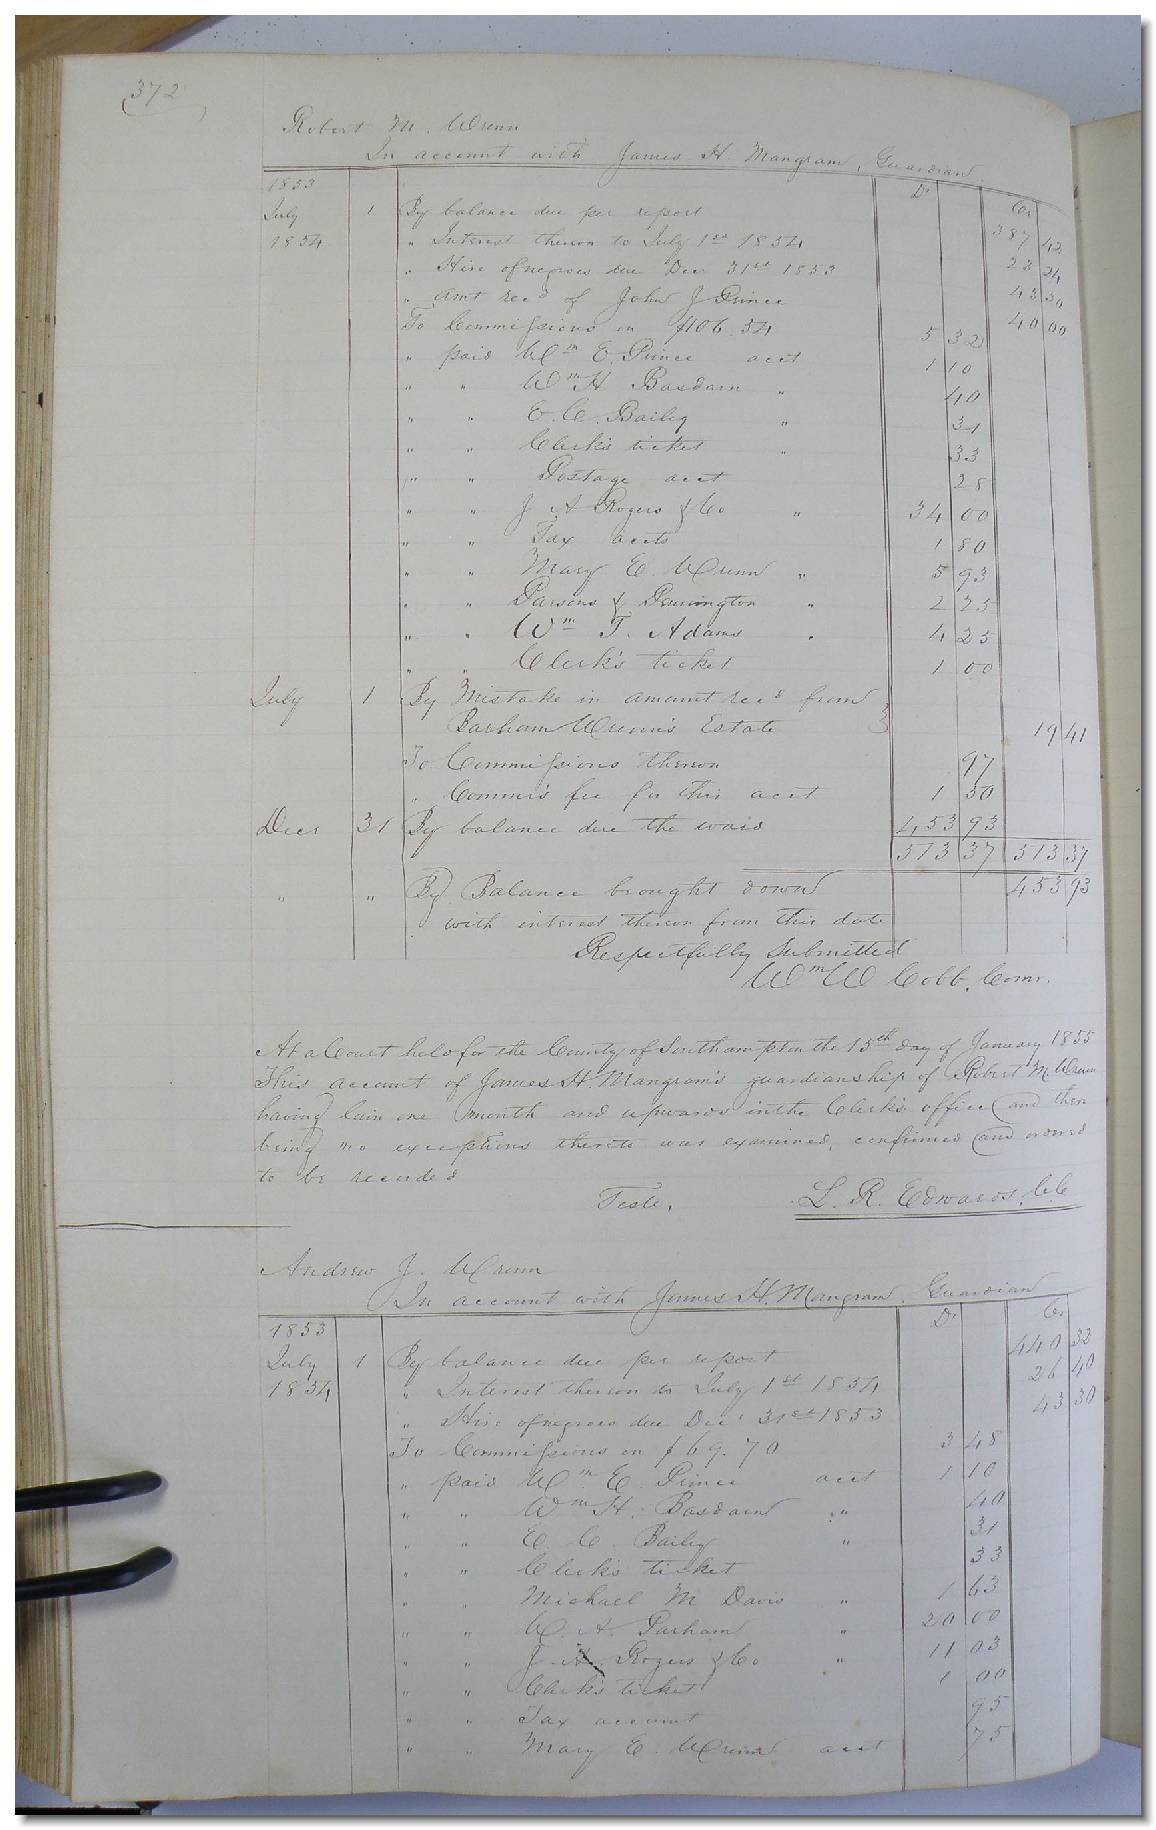 372
Robert M. Wrenn
In account with James H. Mangram, Guardian.
1853 Dr Cr
July 1 By balance due per report 387 42
1854 " Interest thereon to July 1st 1854 23 24
" Hire of negroes due Decr 31st 1853 43 30
" Amt recd of John J Prince 40 00
To Commissions on $106.54 5 32
" paid Wm E. Prince acct 1 10
" " Wm H Basdarn " 40
" " E. C. Bailey " 31
" " Clerk's ticket " 33
" " Postage acct 28
" " J A Rogers & Co " 34 00
" " Tax accts 1 80
" " Mary E. Wrenn " 5 93
" " Parsons & Pennington " 2 25
" " Wm T. Adams " 4 25
" " Clerk's ticket 1 00
July 1 By Mistake in amount recd from
Barham Wrenn's Estate 19 41
To Commissions thereon 97
" Commr's fee for this acct 1 50
Decr 31 By balance due the ward 453 93
513 37 513 37
" " By Balance brought down 453 93
with interest thereon from this date
Respectfully Submitted
Wm W Cobb, Comr.
At a Court held for the County of Southampton the 15th day of January 1855
This account of James H. Mangram's guardianship of Robert M. Wrenn
having lain one month and upwards in the Clerk's office and there
being no exceptions thereto was examined, confirmed and ordered
to be recorded
Teste, L. R. Edwards, C.C
Andrew J. Wrenn
In account with James H. Mangram, Guardian
1853 Dr Cr
July 1 By balance due per report 440 32
1854 " Interest thereon to July 1st 1854 26 40
" Hire of negroes due Decr 31st 1853 43 30
To Commissions on $69.70 3 48
" paid Wm E. Prince acct 1 10
" " Wm H. Basdarn " 40
" " E. C. Bailey " 31
" " Clerk's ticket 33
" " Michael M Davis " 1 63
" " W. A. Parham " 20 00
" " J. A. Rogers & Co " 11 03
" " Clerk's ticket 1 00
" " Tax account 95
" " Mary E. Wrenn acct 75